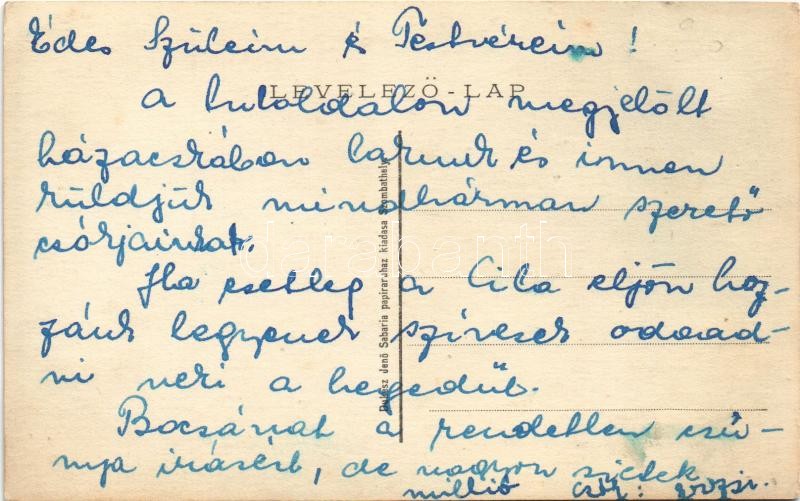 Édes Szüleim és Testvéreim!
LEVELEZŐ-LAP
A túloldalon megjelölt
házacskában lakunk és innen
küldjük mindhárman szerető
csókjainkat.
Ha esetleg a Cila eljön hoz-
zánk legyenek szívesek odaad-
ni neki a hegedűt.
Bocsánat a rendetlen csú-
nya írásért, de nagyon sietek
millió csók:
Dukász Jenő Sabaria papiraruház kiadasa Szombathely
darabanth